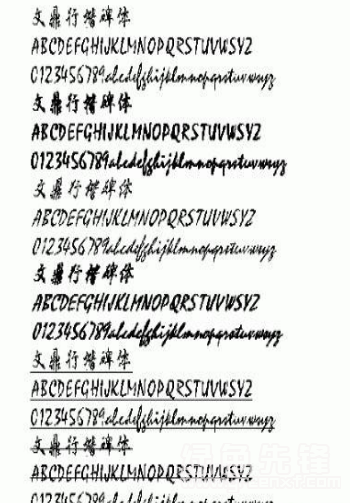 文鼎行楷碑体
ABCDEFGHIJKLMNOPQRSTUVWSYZ
0123456789abcdefghijklmnopqrstuvwxwyz
文鼎行楷碑体
ABCDEFGHIJKLMNOPQRSTUVWSYZ
0123456789abcdefghijklmnopqrstuvwxwyz
文鼎行楷碑体
ABCDEFGHIJKLMNOPQRSTUVWSYZ
0123456789abcdefghijklmnopqrstuvwxwyz
文鼎行楷碑体
ABCDEFGHIJKLMNOPQRSTUVWSYZ
0123456789abcdefghijklmnopqrstuvwxwyz
文鼎行楷碑体
ABCDEFGHIJKLMNOPQRSTUVWSYZ
0123456789abcdefghijklmnopqrstuvwxwyz
文鼎行楷碑体
ABCDEFGHIJKLMNOPQRSTUVWSYZ
绿色先锋